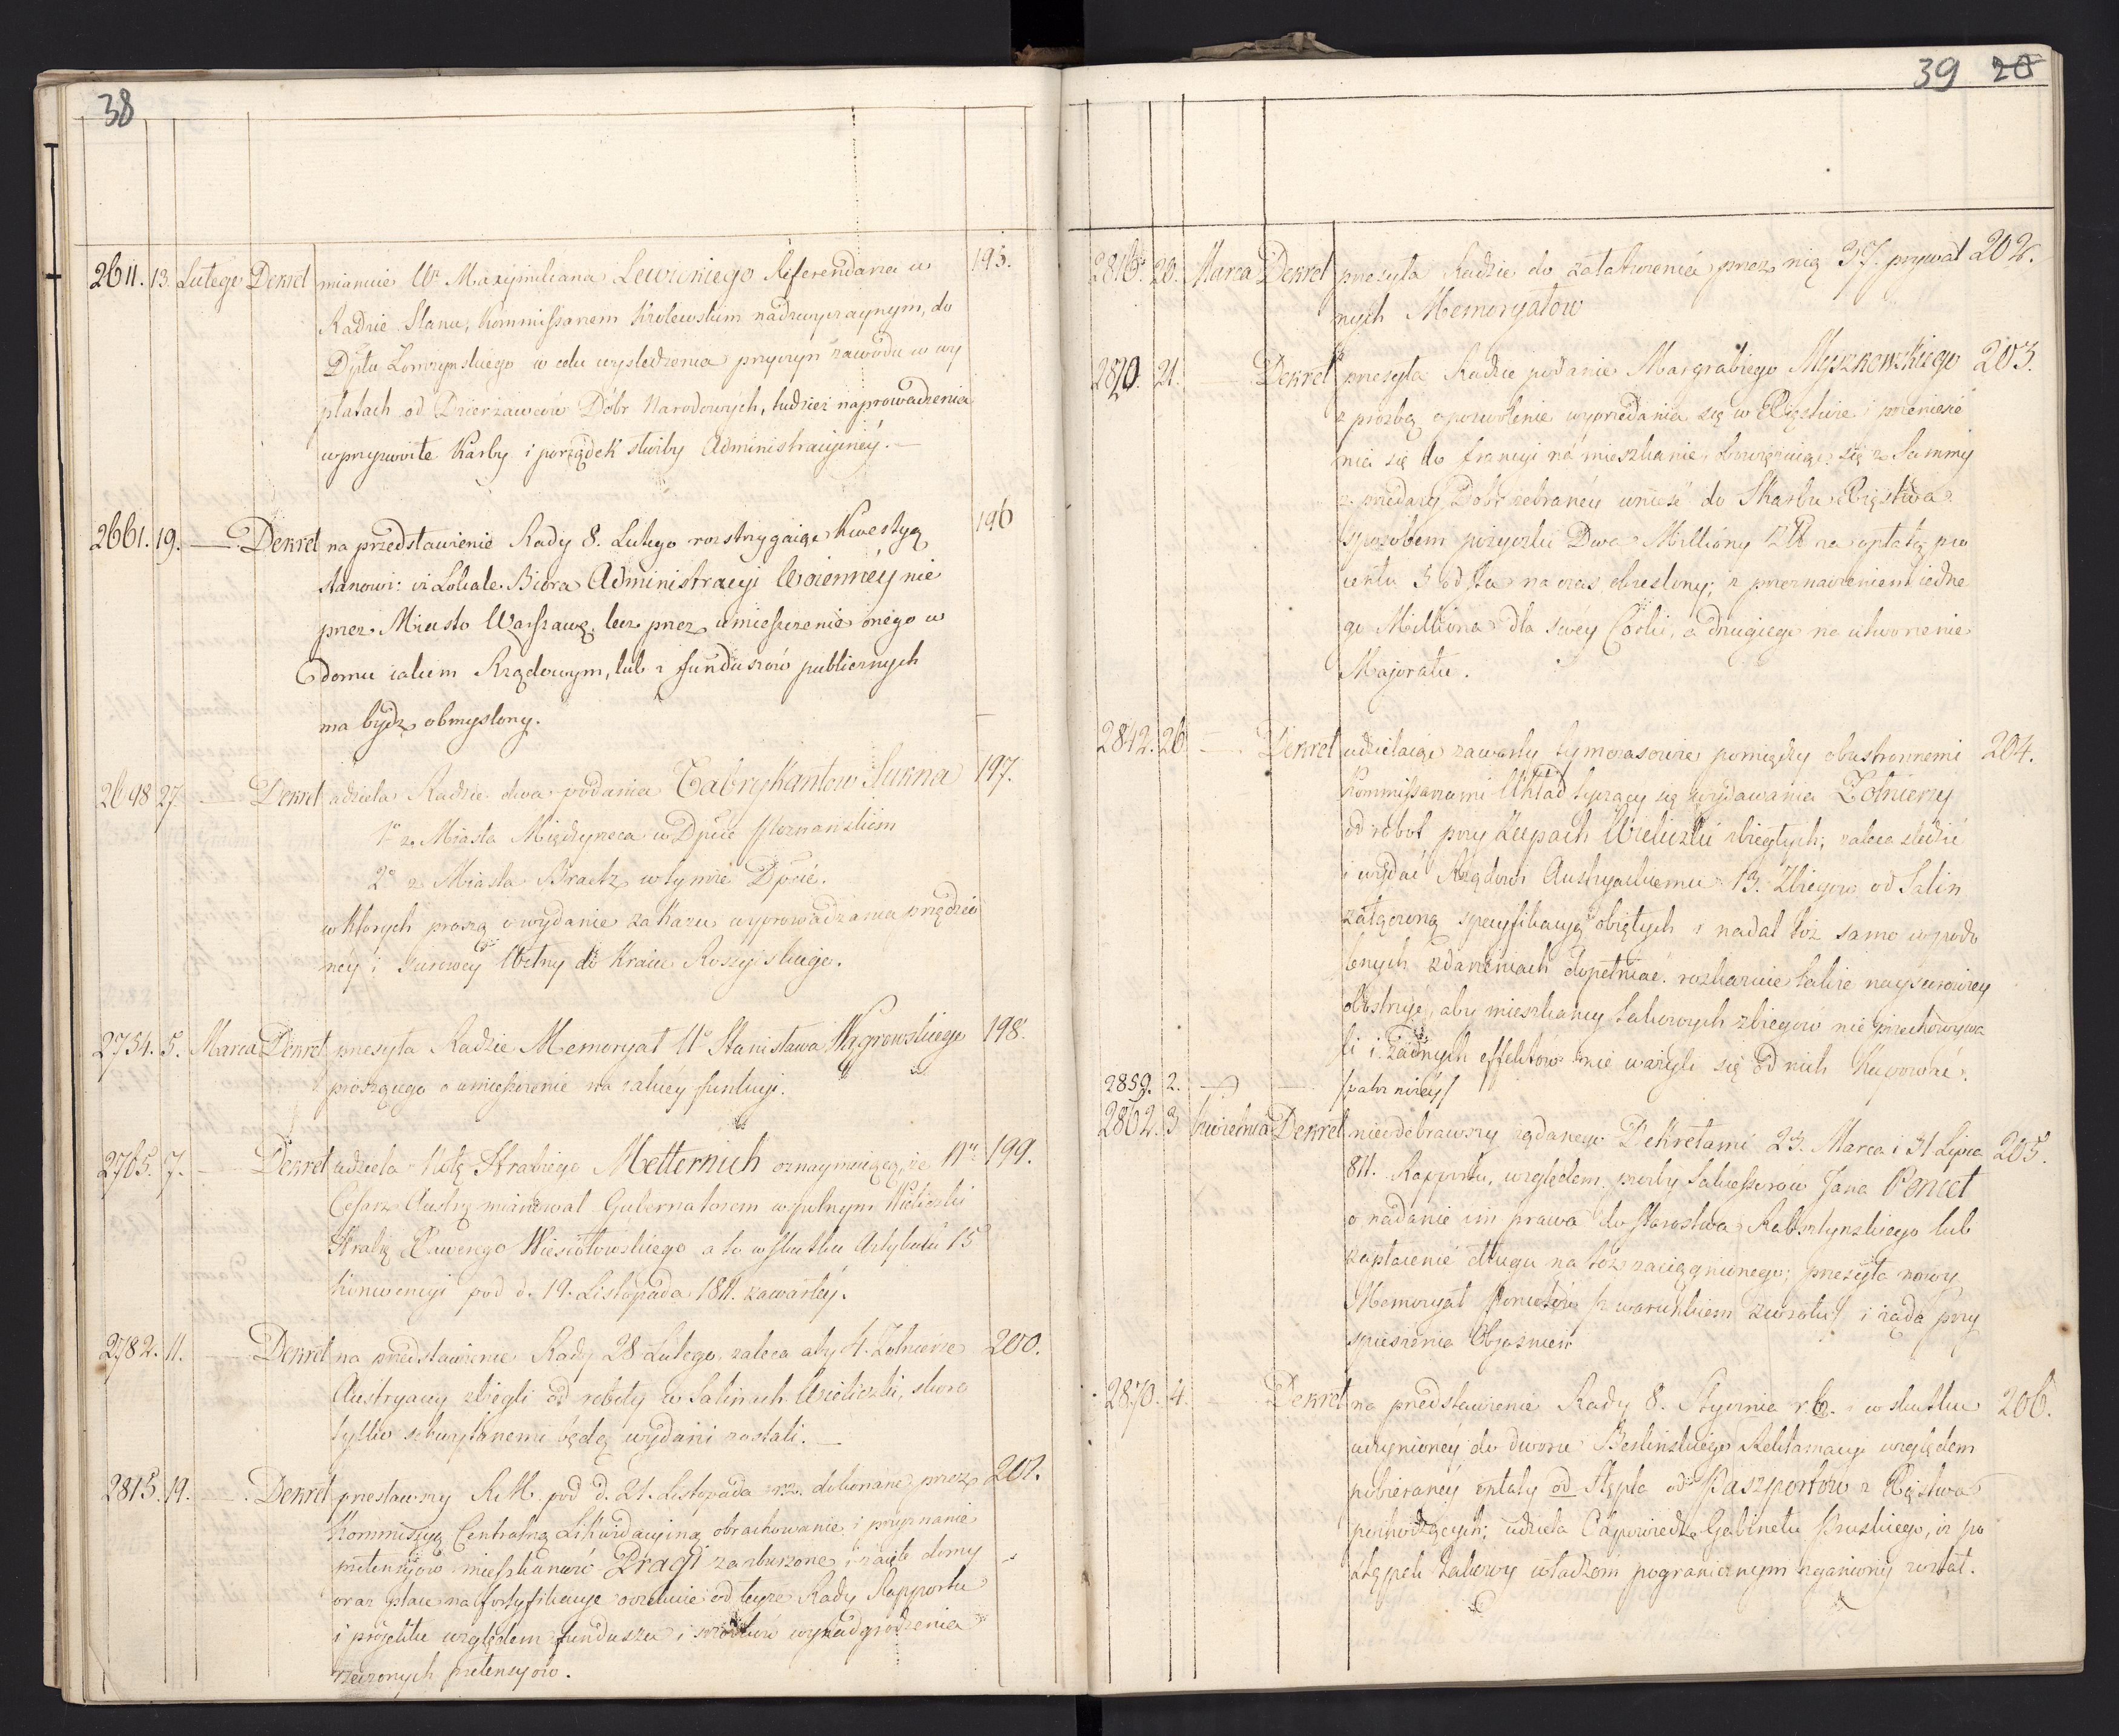 38
2611. 13. Lutego Dekret mianuie Wo Maxymiliana Lewinskiego Referendarza w 195.
Radzie Stanu, Kommissarzem Krolewskim nadzwyczaynym, do
Dptu Łomzynskiego w celu wysledzenia przyczyn zawodu w wy
płatach od Dzierżawców Dóbr Narodowych, tudzież naprowadzenia
w przyzwoite Karby i porządek służby Administracyjnéy. —
2661. 19. — Dekret na przedstawienie Rady 8. Lutego rozstrzygaiąc Kwestyą 196
stanowi: iż Lokale Biora Administracyi Woiennéy nie
przez Miasto Warszawę, lecz przez umieszczenie onego w
domu iakim Rządowym, lub z funduszów publicznych
ma bydz obmyslony.
2698 27. — Dekret udziela Radzie dwa podania Fabrykantow Sukna 197.
1o z Miasta Międzyrzeca w Dpcie Poznanskiem
2o z Miasta Bractz w tymże Dpcie.
w których proszą o wydanie zakazu wyprowadzania przędzio
néy i surowéy Wełny do Kraiu Rossyiskiego.
2754. 5. Marca Dekret przesyła Radzie Memoryał Uo Stanisława Węgrowskiego 198.
proszącego o umieszczenie na iakiéy funkcyi.
2765. 7. — Dekret udziela Notę Hrabiego Metternich oznaymuiącą, że Nn 199.
Cesarz Austry mianował Gubernatorem wspolnym Wieliczki
Hrabię Xawerego Wiesiołowskiego a to w skutku Artykułu 15
Konwencyi pod d. 19. Listopada 1811. zawartéy.
2782. 11. — Dekret na przedstawienie Rady 28 Lutego, zaleca aby 4. Żołnierze 200.
Austryaccy zbiegli od roboty w Salinach Wieliczki, skoro
tylko schwytanemi będą wydani zostali. —
2815. 19. — Dekret przesławszy R. M. pod d. 21. Listopada rz. dokonane przez 201.
Kommissyą Centralną Likwidacyiną obrachowanie i przyznanie
pretensyow mieszkancow Pragi za zburzone i zaięte domy
oraz place na fortyfikacye oczekuie od teyże Rady Rapportu
i projektu względem funduszu i wynadgrodzenia
rzeczonych pretensyow.
39 20
2816. 20. Marca Dekret przesyła Radzie do załatwienia przez nią 37. prywat 202.
nych Memoryałow
2820. 21. — Dekret przesyła Radzie podanie Margrabiego Myszkowskiego 203.
z prozbą o pozwolenie wyprzedania się w Xięstwie i przeniesie
nia się do francyi na mieszkanie, obowięzuiąc się z Summy
z przedaży Dobr zebranéy wnieść do Skarbu Xięstwa
sposobem pożyczki Dwa Milliony ZłP na opłatę pro
centu 5 od sta na czas okreslony, z przeznaczeniem iedne
go Milliona dla swéy Corki, a drugiego na utworzenie
Majoratu.
2842. 26. — Dekret udzielaiąc zawarty tymczasowie pomiędzy obustronnemi 204.
Kommissarzami Układ tyczący się wydawania Żołnierzy
od robot przy Żupach Wieliczki zbiegłych, zaleca sledzić
i wydać Rządowi Austryackiemu 13. Zbiegow od Salin
załączoną specyfikacyą obiętych i nadal toż samo w podo
bnych zdarzeniach dopełniać. rozkazuie także naysurowiey
obostrzyć, aby mieszkancy takowych zbiegow nie przechowywa
li i żadnych effektow nie ważyli się od nich Kupować.
2859. 2. — — /patrz niżéy/
2862. 3 Kwietnia Dekret nieodebrawszy żądanego Dekretami 23. Marca i 31 Lipca 205.
811. Rapportu, względem prozby Sukcessorow Jana Poncet
o nadanie im prawa do Starostwa Rabsztynskiego lub
zapłacenie długu na toż zaciągnionego; przesyła nowy
Memoryał Poncetow /z warunkiem zwrotu/ i żąda przy
spieszenia Objasnień
2870. 4. — Dekret na przedstawienie Rady 8. Stycznia r. b. w skutku 206.
uczynioney do dworu Berlinskiego Reklamacyi względem
pobieraney opłaty od Stępla od Paszportow z Xięstwa
pochodzących; udziela Odpowiedź Gabinetu Pruskiego, iż po
stępek takowy władzom pogranicznym zganiony został.